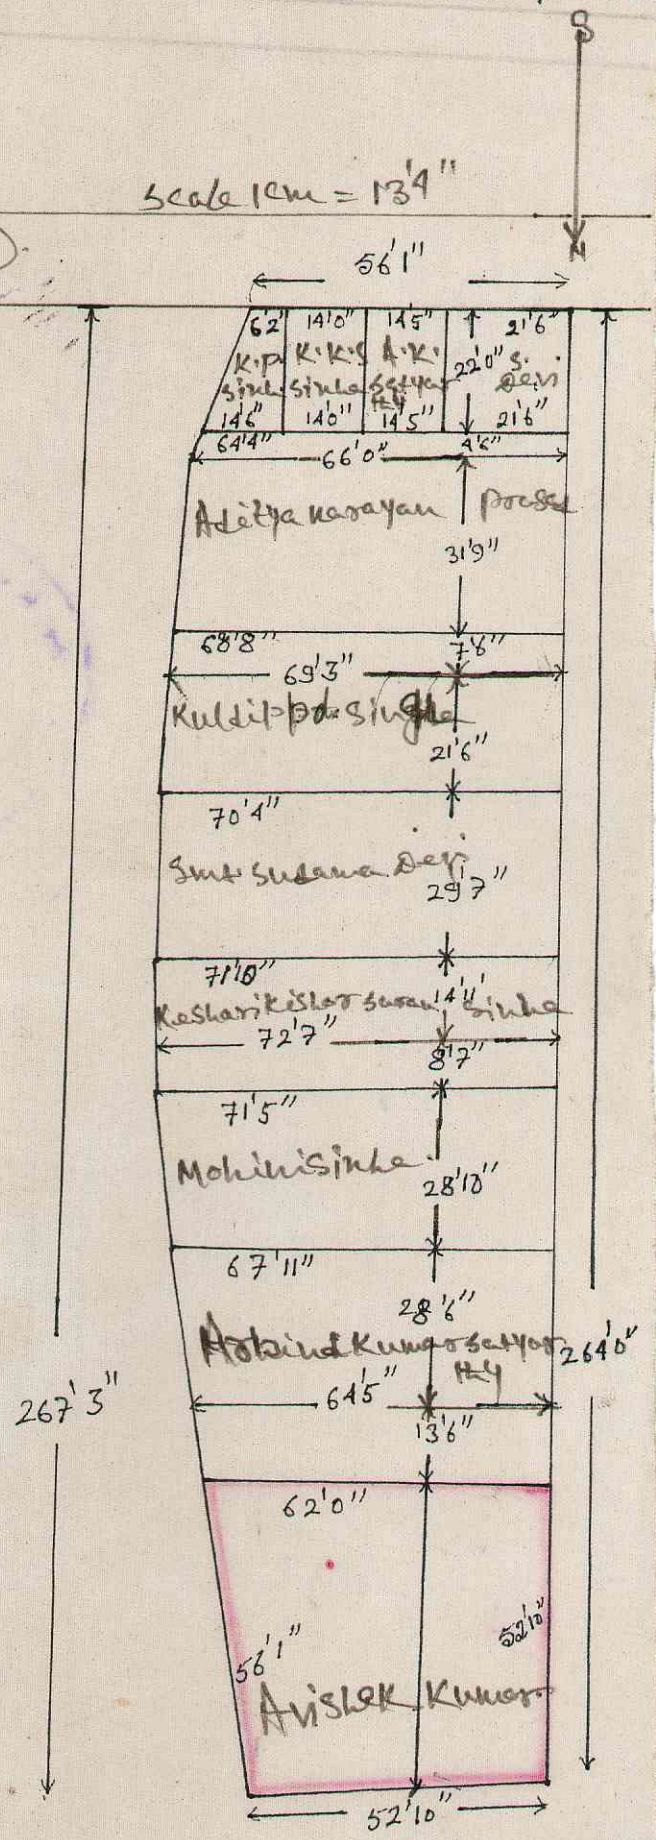 S
Scale 1cm = 13'4"
N
56'1"
6'2" 14'0" 14'5" 21'6"
K.P. K.K.S A.K. 22'0" S.
Sinha Sinha Satyar Devi
thy
14'6" 14'0" 14'5" 21'6"
64'4" 4'6"
66'0"
Aditya narayan Prasad
31'9"
68'8" 7'8"
69'3"
Kuldip pd. Singha
21'6"
70'4"
Smt. Sudama Devi
29'7"
71'0"
Keshari Kishor Saran 14'11" Sinha
72'7"
8'7"
71'5"
Mohini Sinha
28'10"
67'11"
28'6"
Arbind Kumar Satyar
thy
264'0"
64'5"
267'3"
13'6"
62'0"
52'10"
56'1"
Avishek Kumar
52'10"